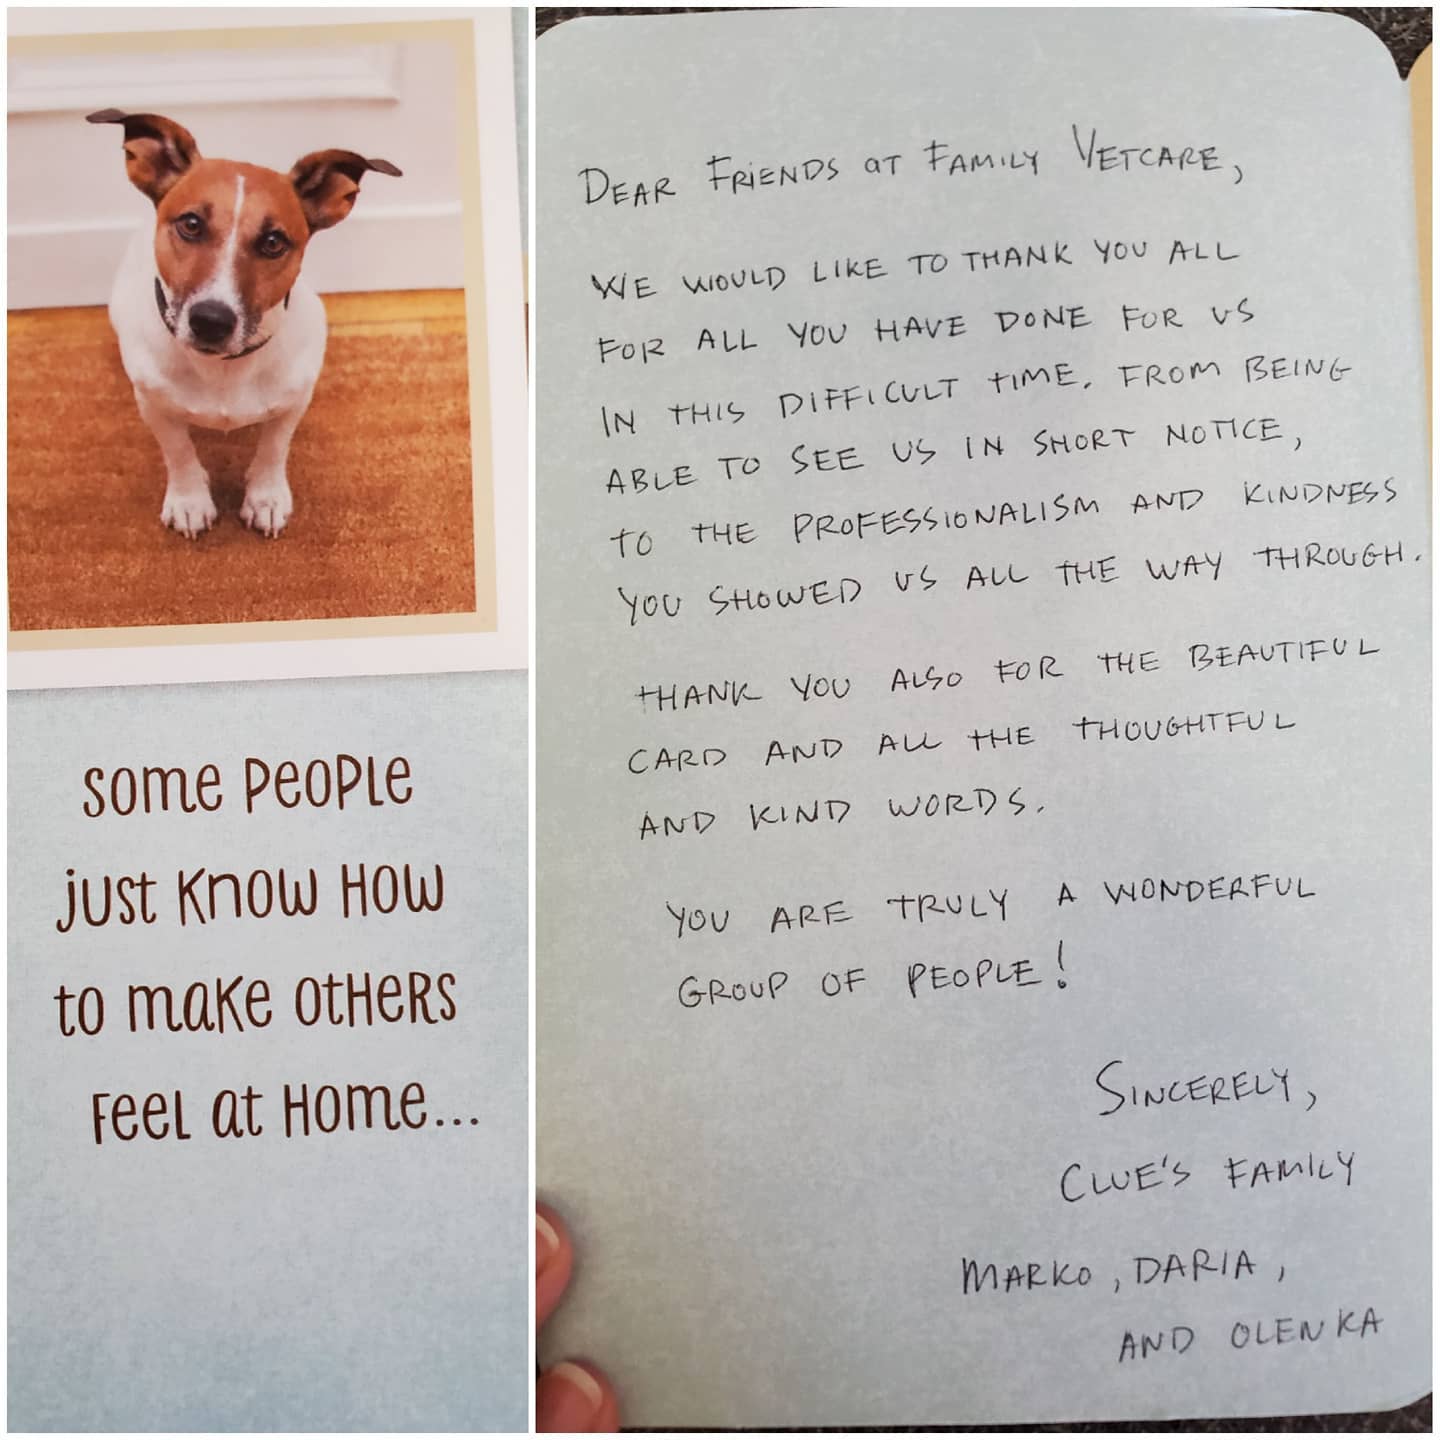 some people
just know how
to make others
feel at home...
DEAR FRIENDS at FAMILY VETCARE,
WE WOULD LIKE TO THANK YOU ALL
FOR ALL YOU HAVE DONE FOR US
IN THIS DIFFICULT TIME. FROM BEING
ABLE TO SEE US IN SHORT NOTICE,
TO THE PROFESSIONALISM AND KINDNESS
YOU SHOWED US ALL THE WAY THROUGH.
THANK YOU ALSO FOR THE BEAUTIFUL
CARD AND ALL THE THOUGHTFUL
AND KIND WORDS.
YOU ARE TRULY A WONDERFUL
GROUP OF PEOPLE!
SINCERELY,
CLUE'S FAMILY
MARKO, DARIA,
AND OLENKA